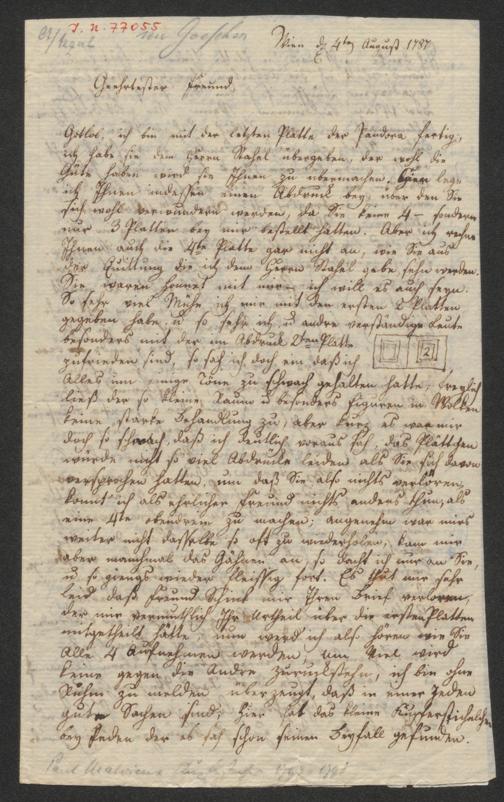 J. N. 77055
an Goeschen
Wien d 4ten August 1787
Geehrtester Freund,
Gotlob, ich bin mit der letzten Platte der Pandora fertig,
ich habe sie dem Herrn Stahel übergeben, der wohl die
Güte haben wird sie Ihnen zu übermachen. Hier lege
ich Ihnen indessen einen Abdruck bey, über den Sie
sich wohl verwundern werden, da Sie keine 4 – sondern
nur 3 Platten bey mir bestellt hatten. Aber ich rechne
Ihnen auch die 4te Platte gar nicht an, wie Sie aus
der Quittung die ich dem Herrn Stahel gebe, sehn werden.
Sie waren honnet mit mir – ich will es auch seyn.
So sehr viel Mühe ich mir mit den ersten 2 Platten
gegeben habe, u so sehr ich u andre verständige Leute
besonders mit der im Abdruck 2ten Platte
2
zufrieden sind, so sah ich doch ein daß ich
Alles um einige Töne zu schwach gehalten hatte, freylich
ließ der so kleine Raum u besonders Figuren in Wolken
keine starke Behandlung zu, aber kurz es war mir
doch so schwach, daß ich deutlich voraus sah, das Plättchen
würde nicht so viel Abdrücke leiden als Sie sich davon
versprochen hatten, um daß Sie also nichts verloren,
konnt ich als ehrlicher Freund nichts anders thun, als
eine 4te obendrein zu machen; angenehm war mirs
weiter nicht dasselbe so oft zu wiederholen, kam mir
aber manchmal das Gähnen an, so dacht ich nur an Sie,
u so giengs wieder fleissig fort. Es thut mir sehr
leid daß Freund Schink mir Ihren Brief verloren,
der mir vermuthlich Ihr Urtheil über die ersten Platten
mitgetheilt hätte, nun werd ich also hören wie Sie
Alle 4 Aufnehmen werden, um Viel wird
keine gegen die Andre zurückstehn, ich bin ohne
Ruhm zu melden überzeugt, daß in einer Jeden
gute Sachen sind; hier hat das kleine Kupferstichelchen
bey Jedem der es sah schon seinen Beyfall gefunden.